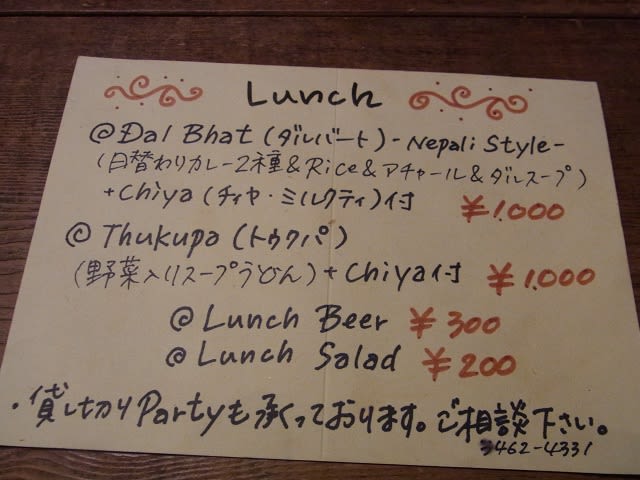 Lunch
@ Dal Bhat (ダルバート) - Nepali Style -
(日替わりカレー2種&Rice&アチャール&ダルスープ)
+ Chiya (チィヤ・ミルクティ)付 ¥1.000
@ Thukupa (トゥクパ)
(野菜入りスープうどん) + Chiya付 ¥1.000
@ Lunch Beer ¥300
@ Lunch Salad ¥200
・貸し切りPartyも承っております。ご相談下さい。
3462-4331